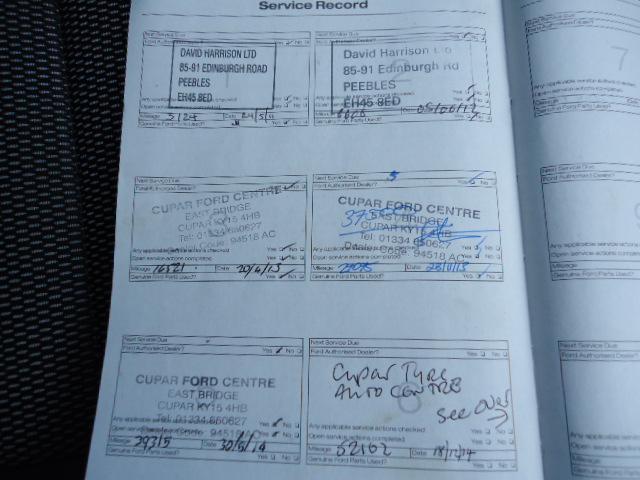 Service Record
Next Service Due
Ford Authorised Dealer? Yes No
DAVID HARRISON LTD
85-91 EDINBURGH ROAD
PEEBLES
EH45 8ED
Any applicable service actions checked
Open service actions completed
Mileage 5124 Date
Genuine Ford Parts Used?
Next Service Due
David Harrison Ltd
85-91 Edinburgh Rd
PEEBLES
EH45 8ED
Mileage Date
Genuine Ford Parts Used?
Next Service Due
Ford Authorised Dealer?
CUPAR FORD CENTRE
EAST BRIDGE
CUPAR KY15 4HB
Tel: 01334 650627
Dealer Code: 94518 AC
Any applicable service actions checked Yes No
Open service actions completed Yes No
Mileage 16521 Date 20/4/13
Genuine Ford Parts Used? Yes No
Next Service Due
Ford Authorised Dealer? Yes No
CUPAR FORD CENTRE
EAST BRIDGE
CUPAR KY15 4HB
Tel: 01334 650627
Dealer Code: 94518 AC
Any applicable service actions checked Yes No
Open service actions completed Yes No
Mileage Date
Genuine Ford Parts Used? Yes No
Next Service Due
Ford Authorised Dealer? Yes No
CUPAR FORD CENTRE
EAST BRIDGE
CUPAR KY15 4HB
Tel: 01334 650627
Dealer Code: 94518
Any applicable service actions checked Yes No
Open service actions completed Yes No
Mileage 29315 Date
Genuine Ford Parts Used? Yes No
Next Service Due
Ford Authorised Dealer? Yes No
Cupar Tyre
Auto Centre
6
see over
Any applicable service actions checked Yes No
Open service actions completed Yes No
Mileage 52162 Date 18/12/14
Genuine Ford Parts Used? Yes No
Next Service Due
Ford Authorised Dealer?
7
Any applicable service actions checked
Open service actions completed
Mileage
Genuine Ford Parts Used?
Next Service Due
Ford Authorised Dealer?
Any applicable service
Open service actions
Mileage
Genuine Ford Parts
Next Service Due
Ford Authorised Dealer?
Any applicable service
Open service actions
Mileage
Genuine Ford Parts